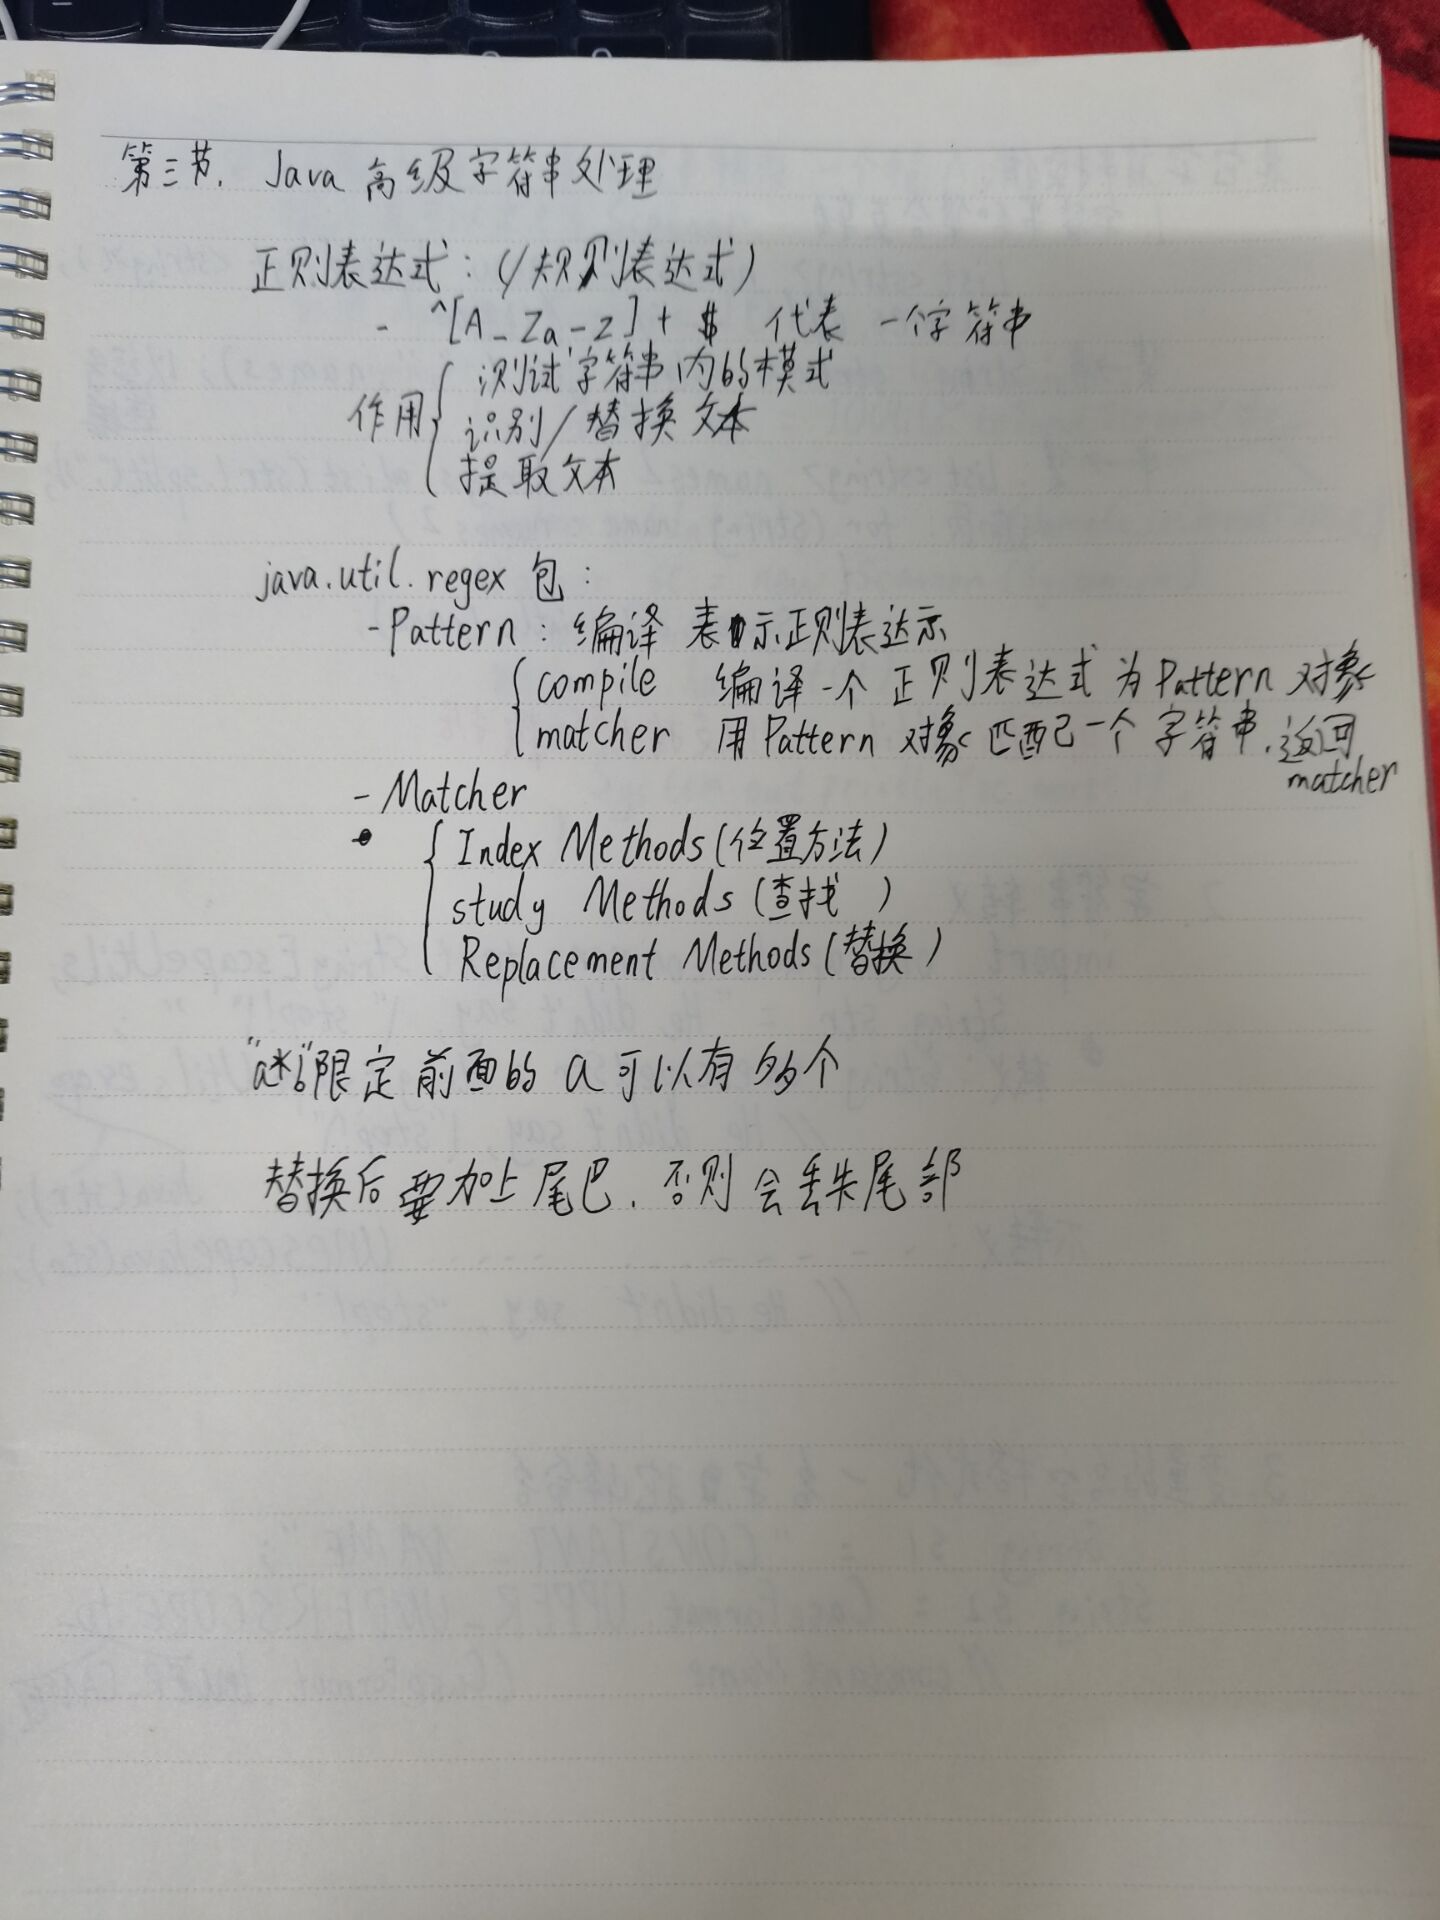 第三节. Java 高级字符串处理
正则表达式：(规则表达式)
- ^[A-Za-z]+$ 代表 一个字符串
作用
测试字符串内的模式
识别/替换文本
提取文本
java.util.regex 包：
-Pattern：编译 表示正则表达示
compile 编译一个正则表达式为Pattern对象
matcher 用Pattern对象匹配一个字符串.返回
matcher
- Matcher
Index Methods(位置方法)
study Methods(查找 )
Replacement Methods(替换)
"a*b"限定前面的a可以有多个
替换后要加上尾巴.否则会丢失尾部